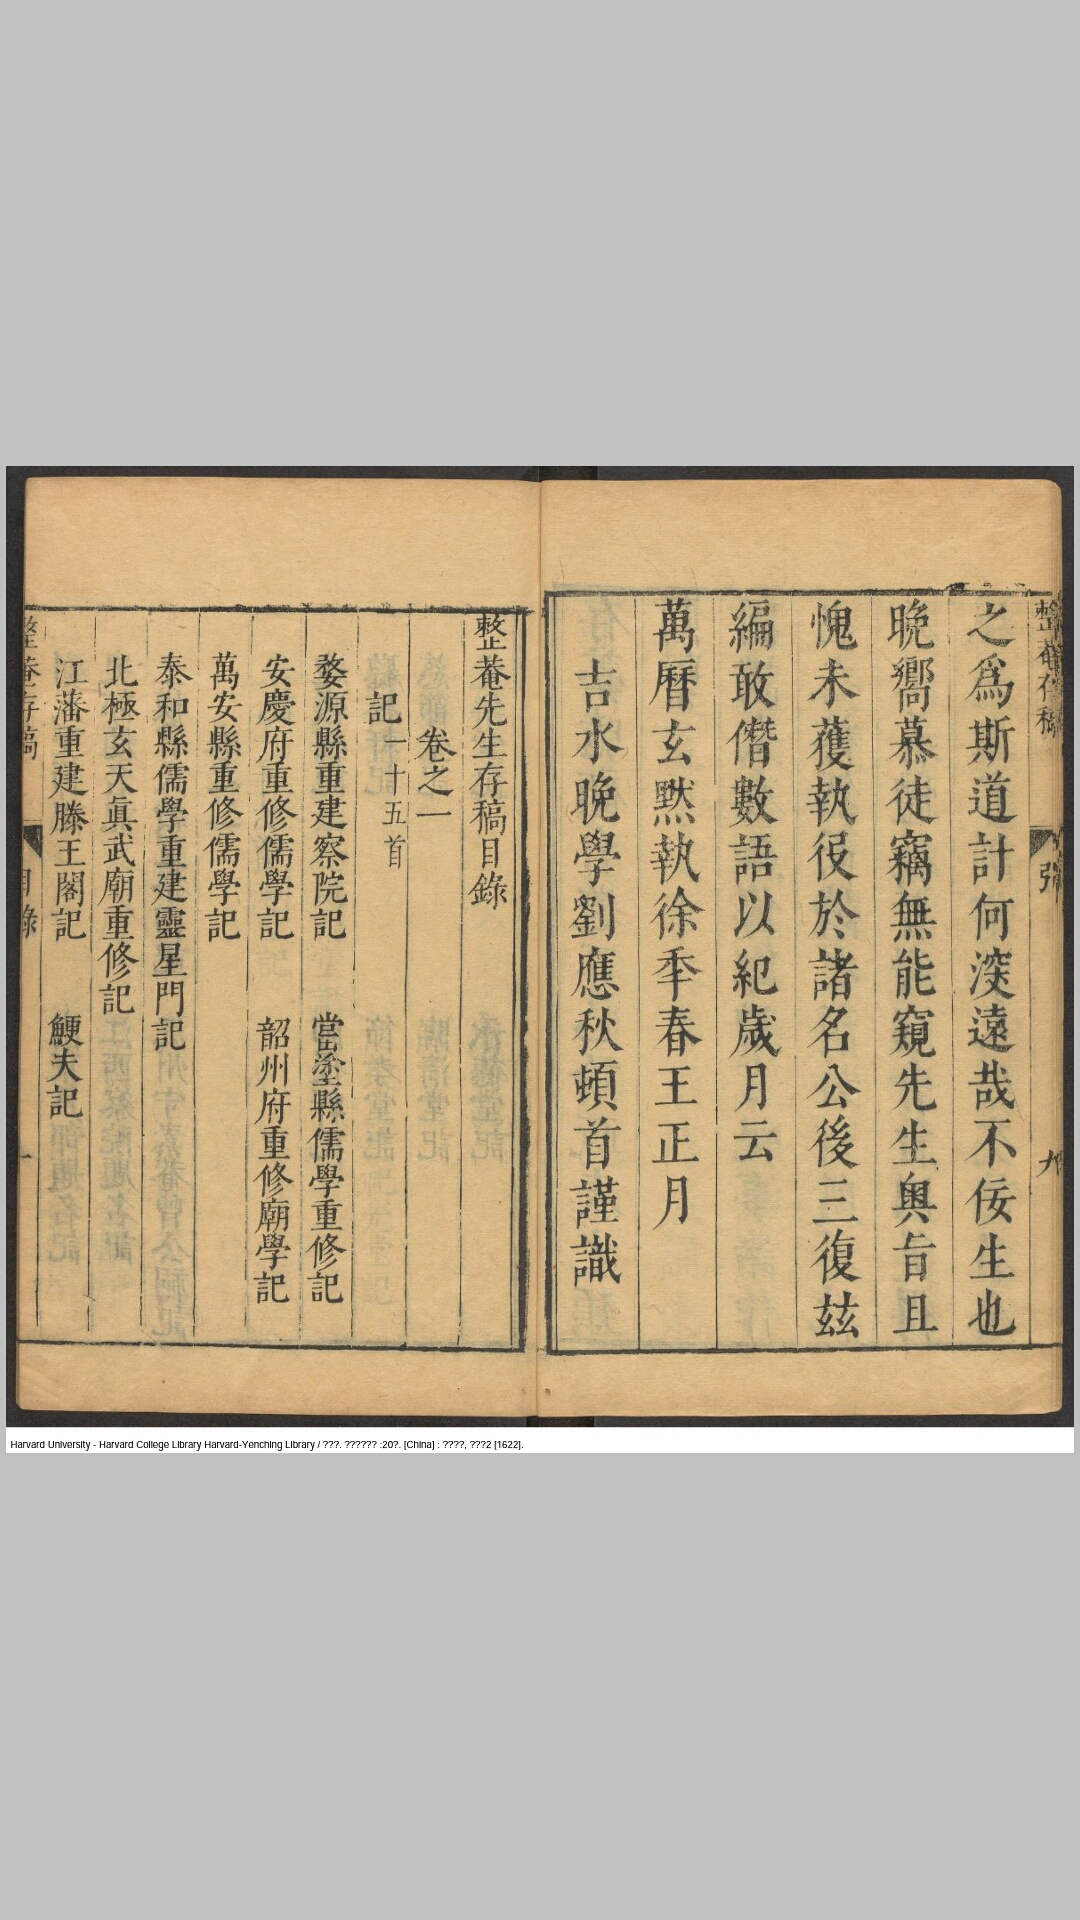 之爲斯道計何深遠哉不佞生也
晚嚮慕徒竊無能窺先生奧旨且
愧未獲執役於諸名公後三復茲
編敢僭數語以紀歲月云
萬曆玄黓執徐季春王正月
吉水晚學劉應秋頓首謹識
整菴先生存稿目錄
卷之一
記一十五首
婺源縣重建察院記 當塗縣儒學重修記
安慶府重修儒學記 韶州府重修廟學記
萬安縣重修儒學記
泰和縣儒學重建靈星門記
北極玄天眞武廟重修記
江藩重建滕王閣記 鯁夫記
Harvard University - Harvard College Library Harvard-Yenching Library / ???. ?????? :20?. [China] : ????, ???2 [1622].